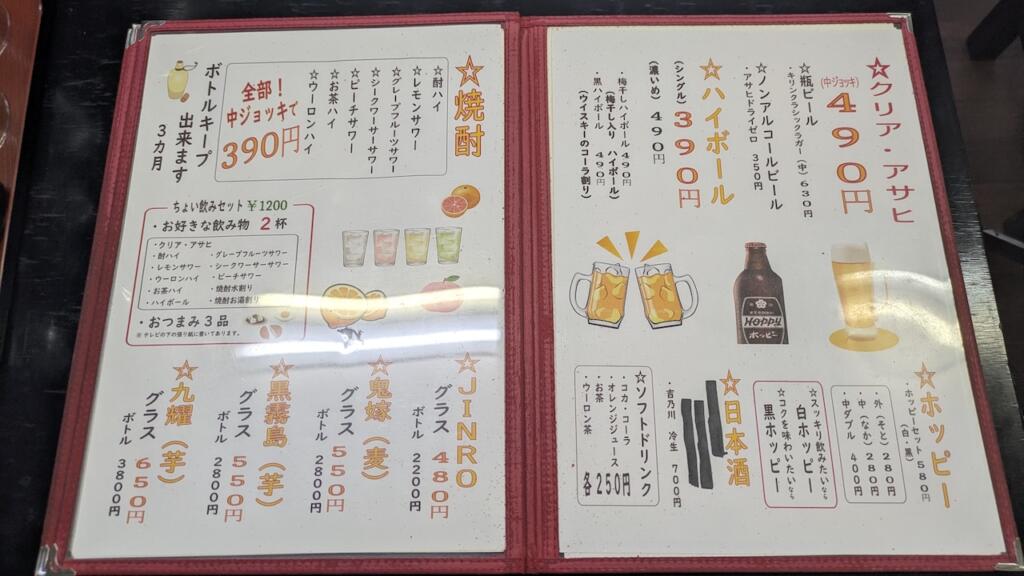 ☆クリア・アサヒ
(中ジョッキ)
490円
☆瓶ビール
・キリンクラシックラガー(中)630円
☆ノンアルコールビール
・アサヒドライゼロ 350円
☆ハイボール
(シングル)390円
(濃いめ)490円
・梅干しハイボール 490円
(梅干し入り ハイボール)
・黒ハイボール 490円
(ウイスキーのコーラ割り)
HOPPY
ホッピー
☆ホッピー
・ホッピーセット 580円
(白・黒)
・外(そと)280円
・中(なか)280円
・中ダブル 400円
スッキリ飲みたいなら
白ホッピー
コクを味わいたいなら
黒ホッピー
☆日本酒
吉乃川 冷生 700円
☆ソフトドリンク
・コカ・コーラ
・オレンジジュース
・お茶
・ウーロン茶
各250円
☆焼酎
☆酎ハイ
☆レモンサワー
☆グレープフルーツサワー
☆シークワーサーサワー
☆ピーチサワー
☆お茶ハイ
☆ウーロンハイ
全部!
中ジョッキで
390円
ボトルキープ
出来ます
3カ月
ちょい飲みセット ¥1200
・お好きな飲み物 2杯
・クリア・アサヒ
・酎ハイ
・レモンサワー
・ウーロンハイ
・お茶ハイ
・ハイボール
・グレープフルーツサワー
・シークワーサーサワー
・ピーチサワー
・焼酎水割り
・焼酎お湯割り
・おつまみ3品
※テレビの下の張り紙に書いてあります。
☆JINRO
グラス 480円
ボトル 2200円
☆鬼嫁(麦)
グラス 550円
ボトル 2800円
☆黒霧島(芋)
グラス 550円
ボトル 2800円
☆九耀(芋)
グラス 650円
ボトル 3800円